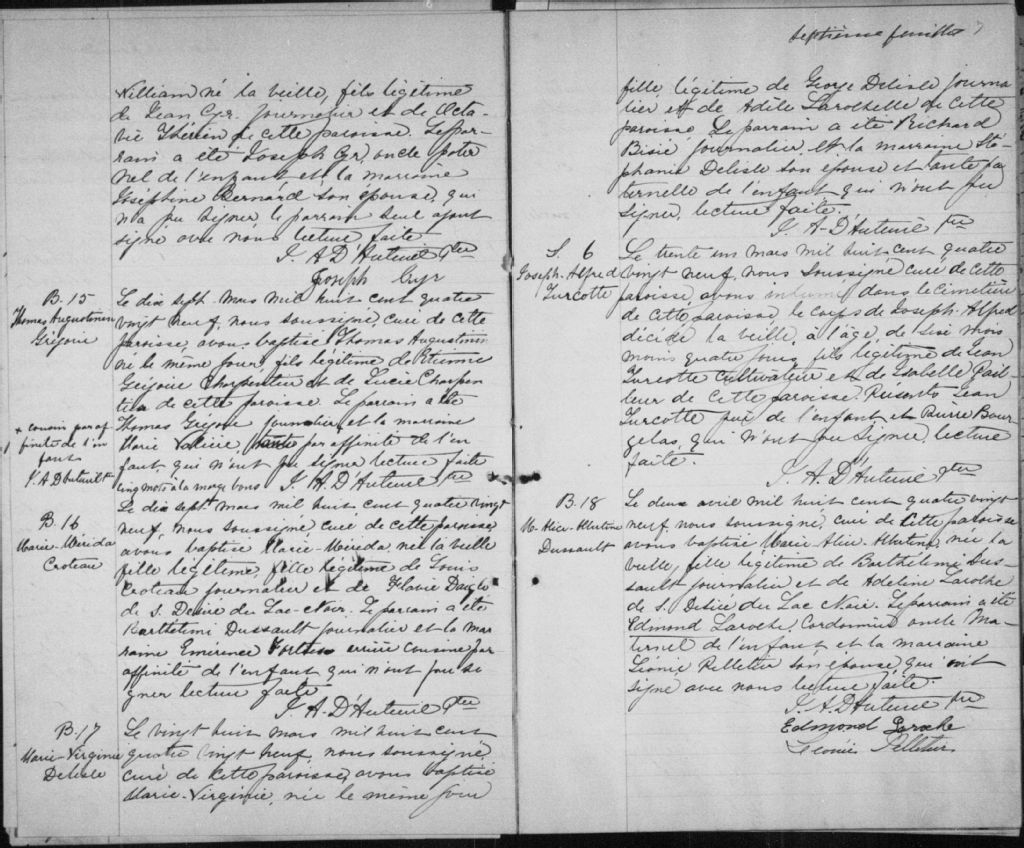 William né la veille, fils légitime
de Jean Cyr. journalier et de Octa-
vie Therien de cette paroisse. Le par-
rain a été Joseph Cyr, oncle pater
nel de l'enfant et la marraine
Joséphine Bernard son épouse, qui
n'a pu signer le parrain seul ayant
signé avec nous lecture faite
J. A D'Auteuil Ptre
Joseph Cyr
B. 15
Thomas Augustinien
Grégoire
Le dix sept mars mil huit cent quatre
vingt neuf, nous soussigné, curé de cette
paroisse, avons baptisé Thomas Augustinien
né le même jour, fils légitime de Etienne
Grégoire Charpentier et de Lucie Charpen
tier de cette paroisse. Le parrain a été
Thomas Grégoire journalier et la marraine
Marie Valliere, tante par affinité de l'en
fant, qui n'ont pu signer lecture faite
cinq mots à la marge bons J. A D'Auteuil Ptre
+ cousin par af
finité de l'en
fant
J. A D'Auteuil Ptre
B. 16
Marie-Mérida
Croteau
Le dix sept mars mil huit cent quatre vingt
neuf, nous soussigné curé de cette paroisse,
avons baptisé Marie-Mérida, née la veille
fille légitime, fille légitime de Louis
Croteau journalier et de Flavie Daigle
de S. Désiré du Lac-Noir. Le parrain a été
Barthélémi Dussault journalier et la mar
raine Emerence Fortier arrière cousine par
affinité de l'enfant qui n'ont pu si
gner lecture faite
J. A-D'Auteuil Ptre
B. 17
Marie-Virginie
Delisle
Le vingt huit mars mil huit cent
quatre vingt neuf, nous soussigné,
curé de cette paroisse, avons baptisé
Marie-Virginie, née le même jour
Septième feuillet 7
fille légitime de George Delisle journa-
lier et de Adèle Larochelle de cette
paroisse. Le parrain a été Richard
Bisié journalier et la marraine Sté-
phanie Delisle son épouse et tante pa
ternelle de l'enfant qui n'ont pu
signer, lecture faite.
J. A-D'Auteuil Ptre
S. 6
Joseph-Alfred
Turcotte
Le trente un mars mil huit cent quatre
vingt neuf, nous soussigné curé de cette
paroisse, avons inhumé dans le cimetière
de cette paroisse, le corps de Joseph-Alfred
décédé la veille, à l'âge, de six mois
moins quatre jours, fils légitime de Jean
Turcotte cultivateur et de Isabelle Fail-
leur de cette paroisse Présents Jean
Turcotte père de l'enfant et Pierre Bour
gelas, qui n'ont pu signer lecture
faite.
J. A. D'Auteuil Ptre
B. 18
M. Alice-Albertine
Dussault
Le deux avril mil huit cent quatre vingt
neuf, nous soussigné, curé de cette paroisse
avons baptisé Marie-Alice-Albertine, née la
veille, fille légitime de Barthélémi Dus-
sault journalier et de Adeline Laroche
de S. Désiré du Lac Noir. Le parrain a été
Edmond Laroche, Cordonnier oncle Ma-
ternel de l'enfant et la marraine
Léonie Pelletier son épouse, qui ont
signé avec nous lecture faite.
J. A. D'Auteuil Ptre
Edmond Laroche
Léonie Pelletier